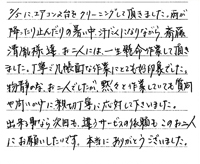 7/5にエアコン2台をクリーニングして頂きました。雨が
降ったり止んだりの暑い中、汗だくになりながら、斎藤
清風様達、お二人には、一生懸命作業して頂き
ました。丁寧で几帳面な作業にとても好印象でした。
物静かな、お二人でしたが、黙々と作業してても質問
や問いかけに親切丁寧に応対して下さいました。
出来る事なら次回も、違うサービスの依頼も、このお二人
にお願いしたいです。本当にありがとうございました。